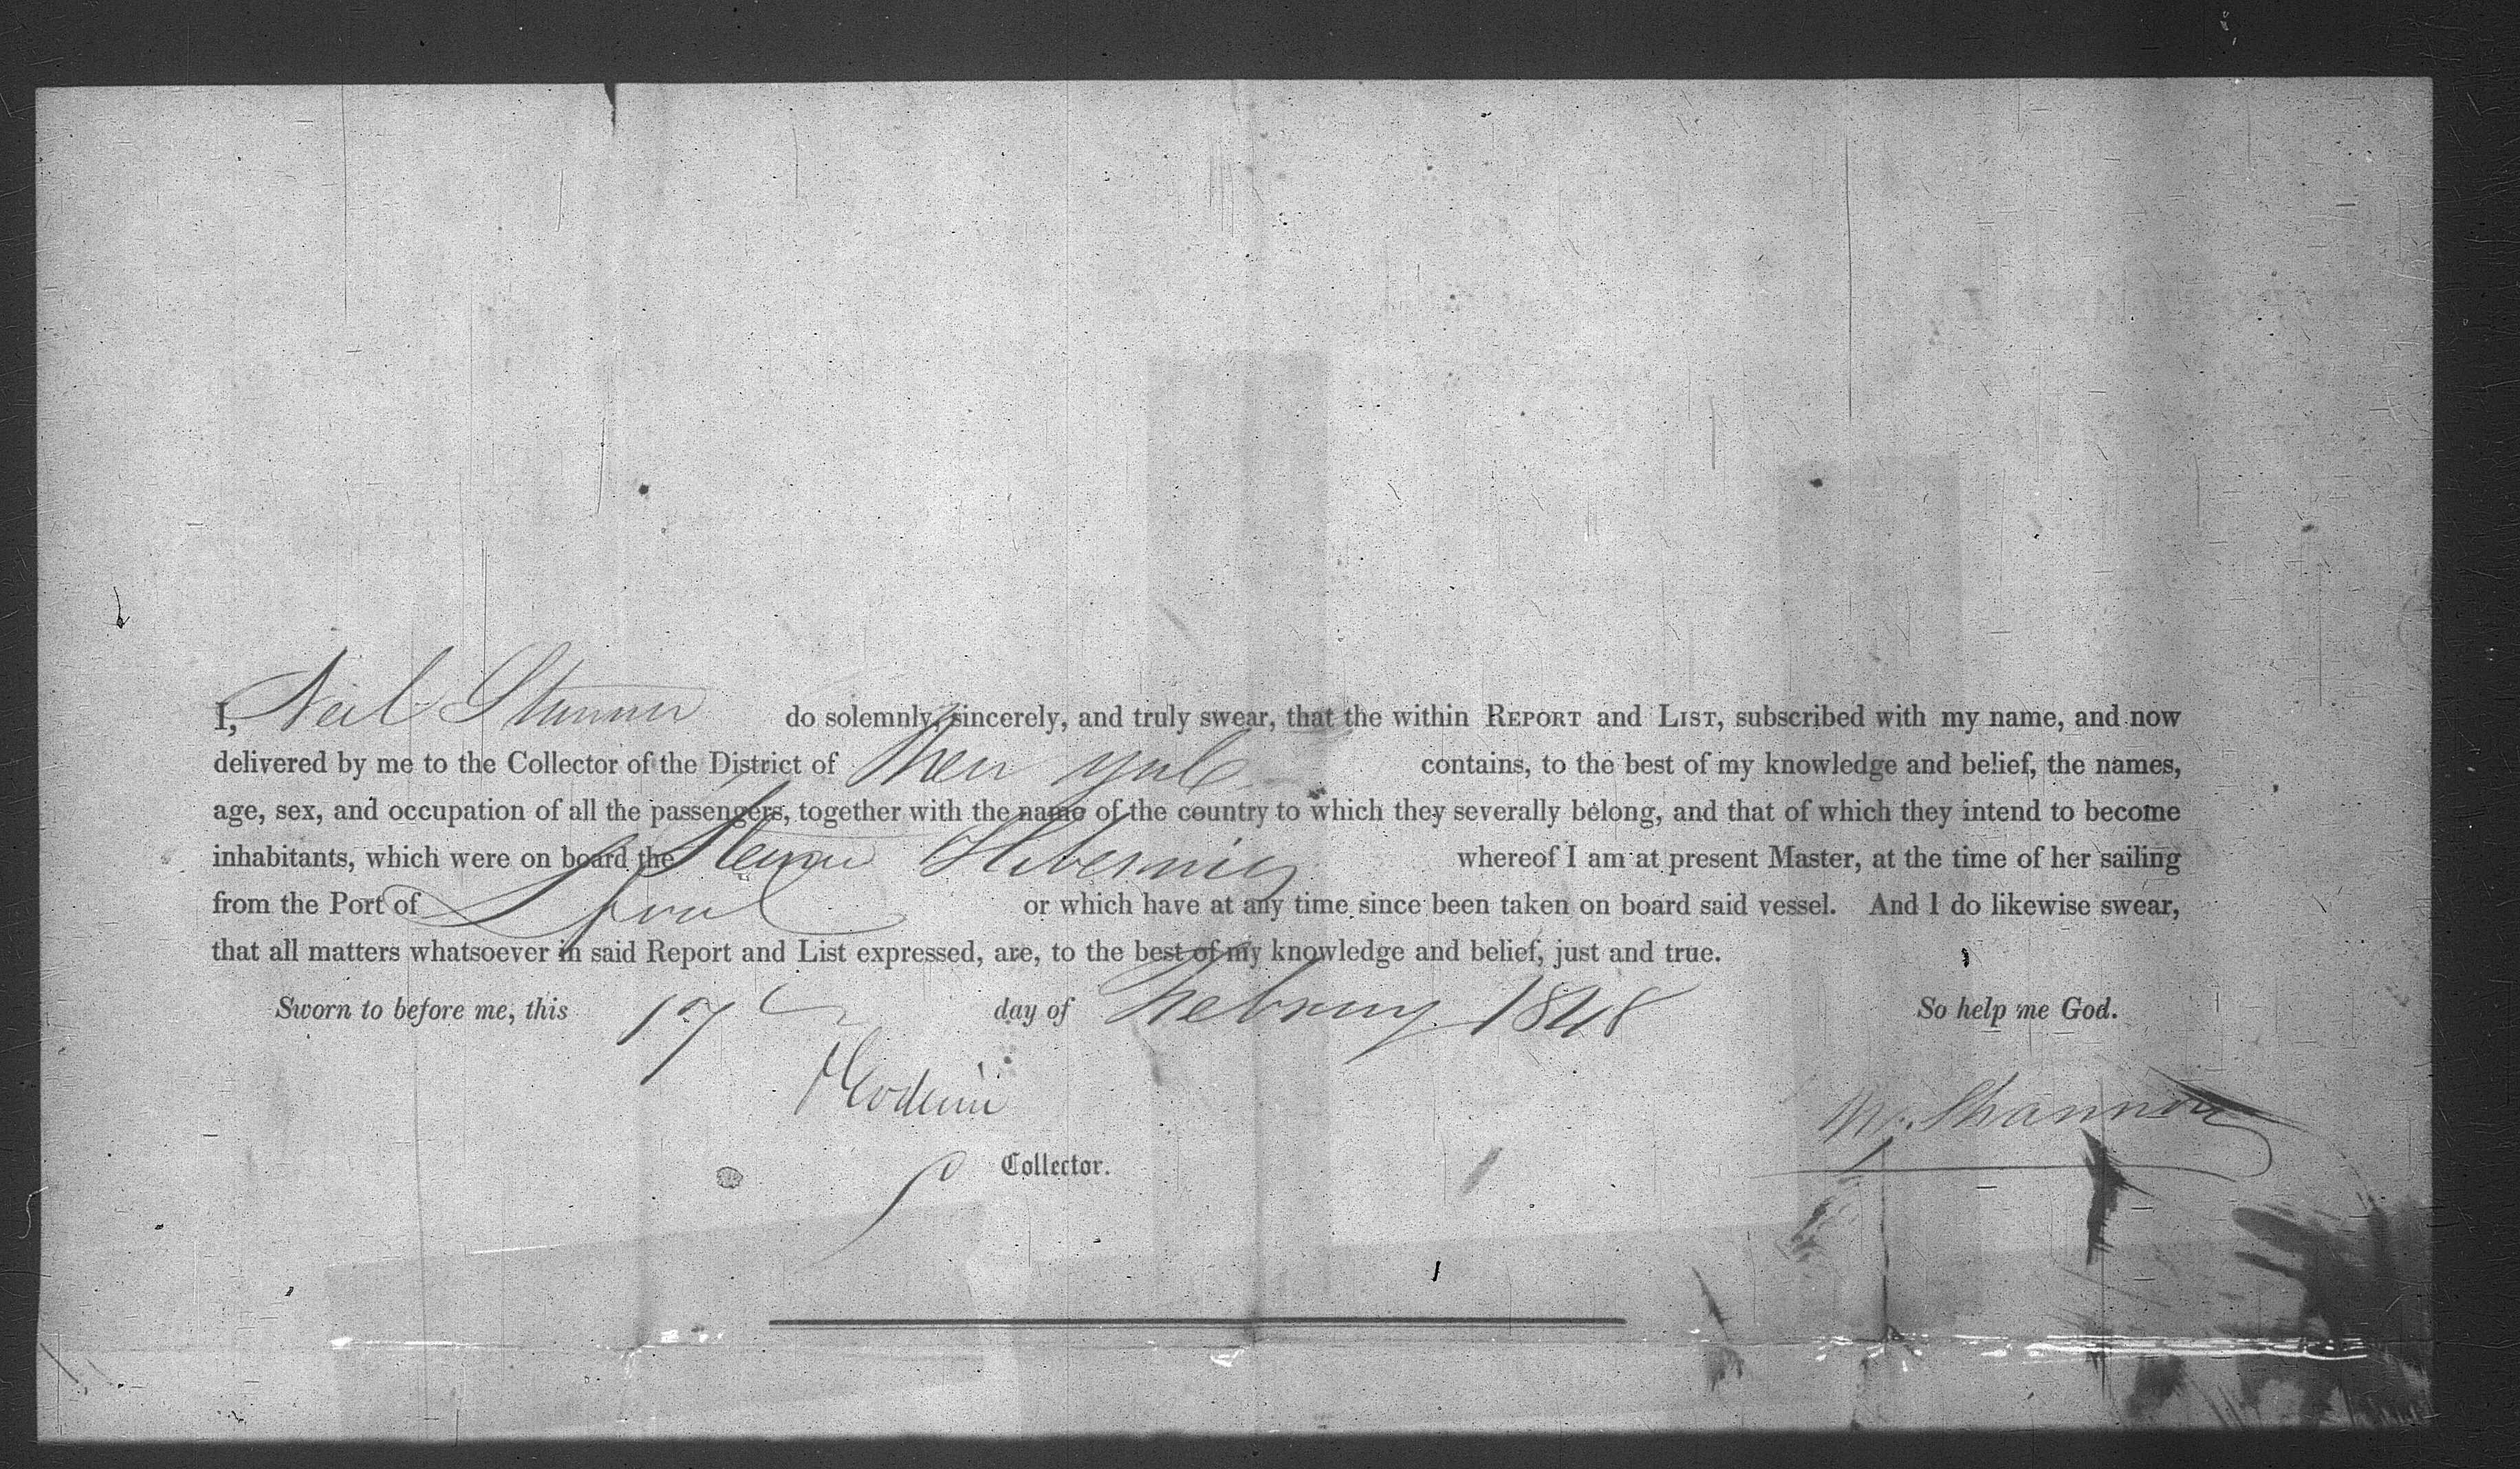 I, Neil do solemnly, sincerely, and truly swear, that the within REPORT and LIST, subscribed with my name, and now
delivered by me to the Collector of the District of New York contains, to the best of my knowledge and belief, the names,
age, sex, and occupation of all the passengers, together with the name of the country to which they severally belong, and that of which they intend to become
inhabitants, which were on board the Steamer Hibernia whereof I am at present Master, at the time of her sailing
from the Port of Lpool or which have at any time since been taken on board said vessel. And I do likewise swear,
that all matters whatsoever in said Report and List expressed, are, to the best of my knowledge and belief, just and true.
Sworn to before me, this 17 day of February 1848 So help me God.
N. Shannon
Collector.